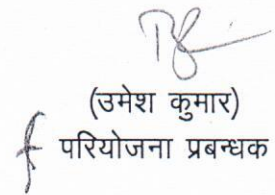 (उमेश कुमार)
परियोजना प्रबन्धक